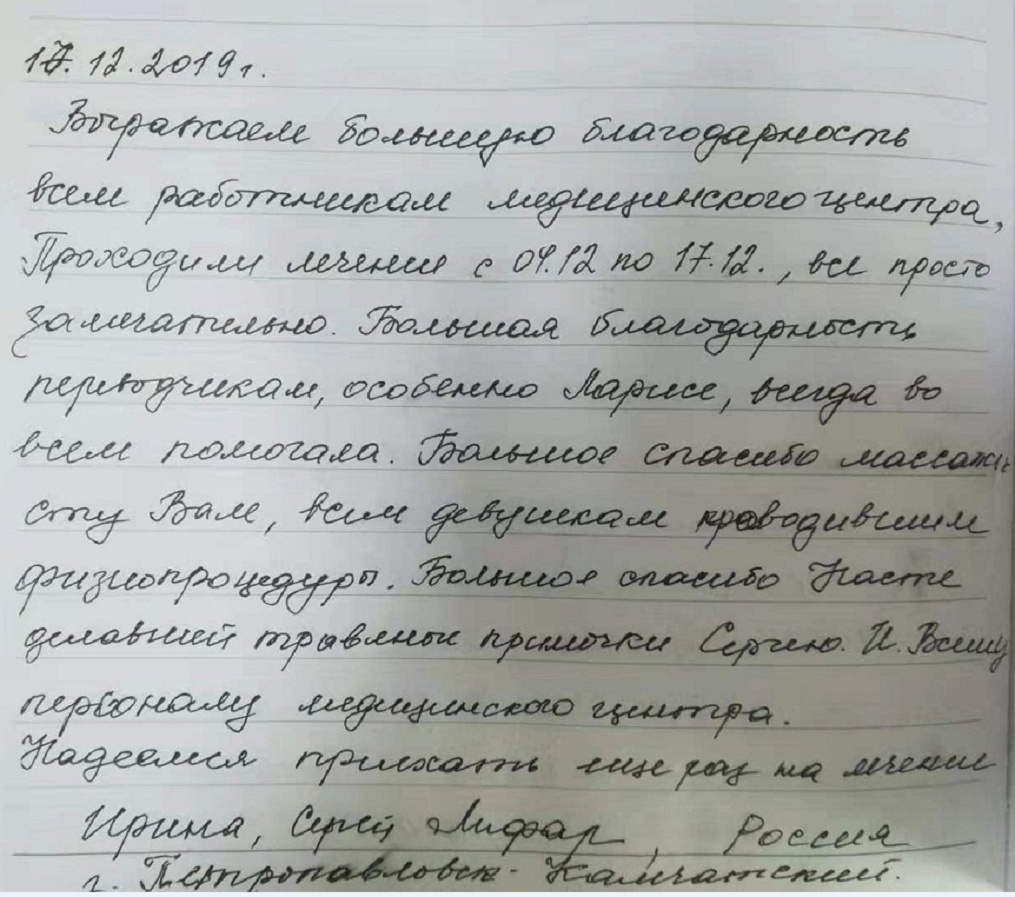 17.12.2019г.
Выражаем большую благодарность
всем работникам медицинского центра,
Проходили лечение с 04.12 по 17.12., все просто
замечательно. Большая благодарность
переводчикам, особенно Ларисе, всегда во
всем помогала. Большое спасибо массажи-
сту Вале, всем девушкам проводившим
физиопроцедуры. Большое спасибо Насте
делавшей травяные примочки Сергею. И. Всему
персоналу медицинского центра.
Надеемся приехать еще раз на лечение
Ирина, Сергей Лифар, Россия
г. Петропавловск-Камчатский.